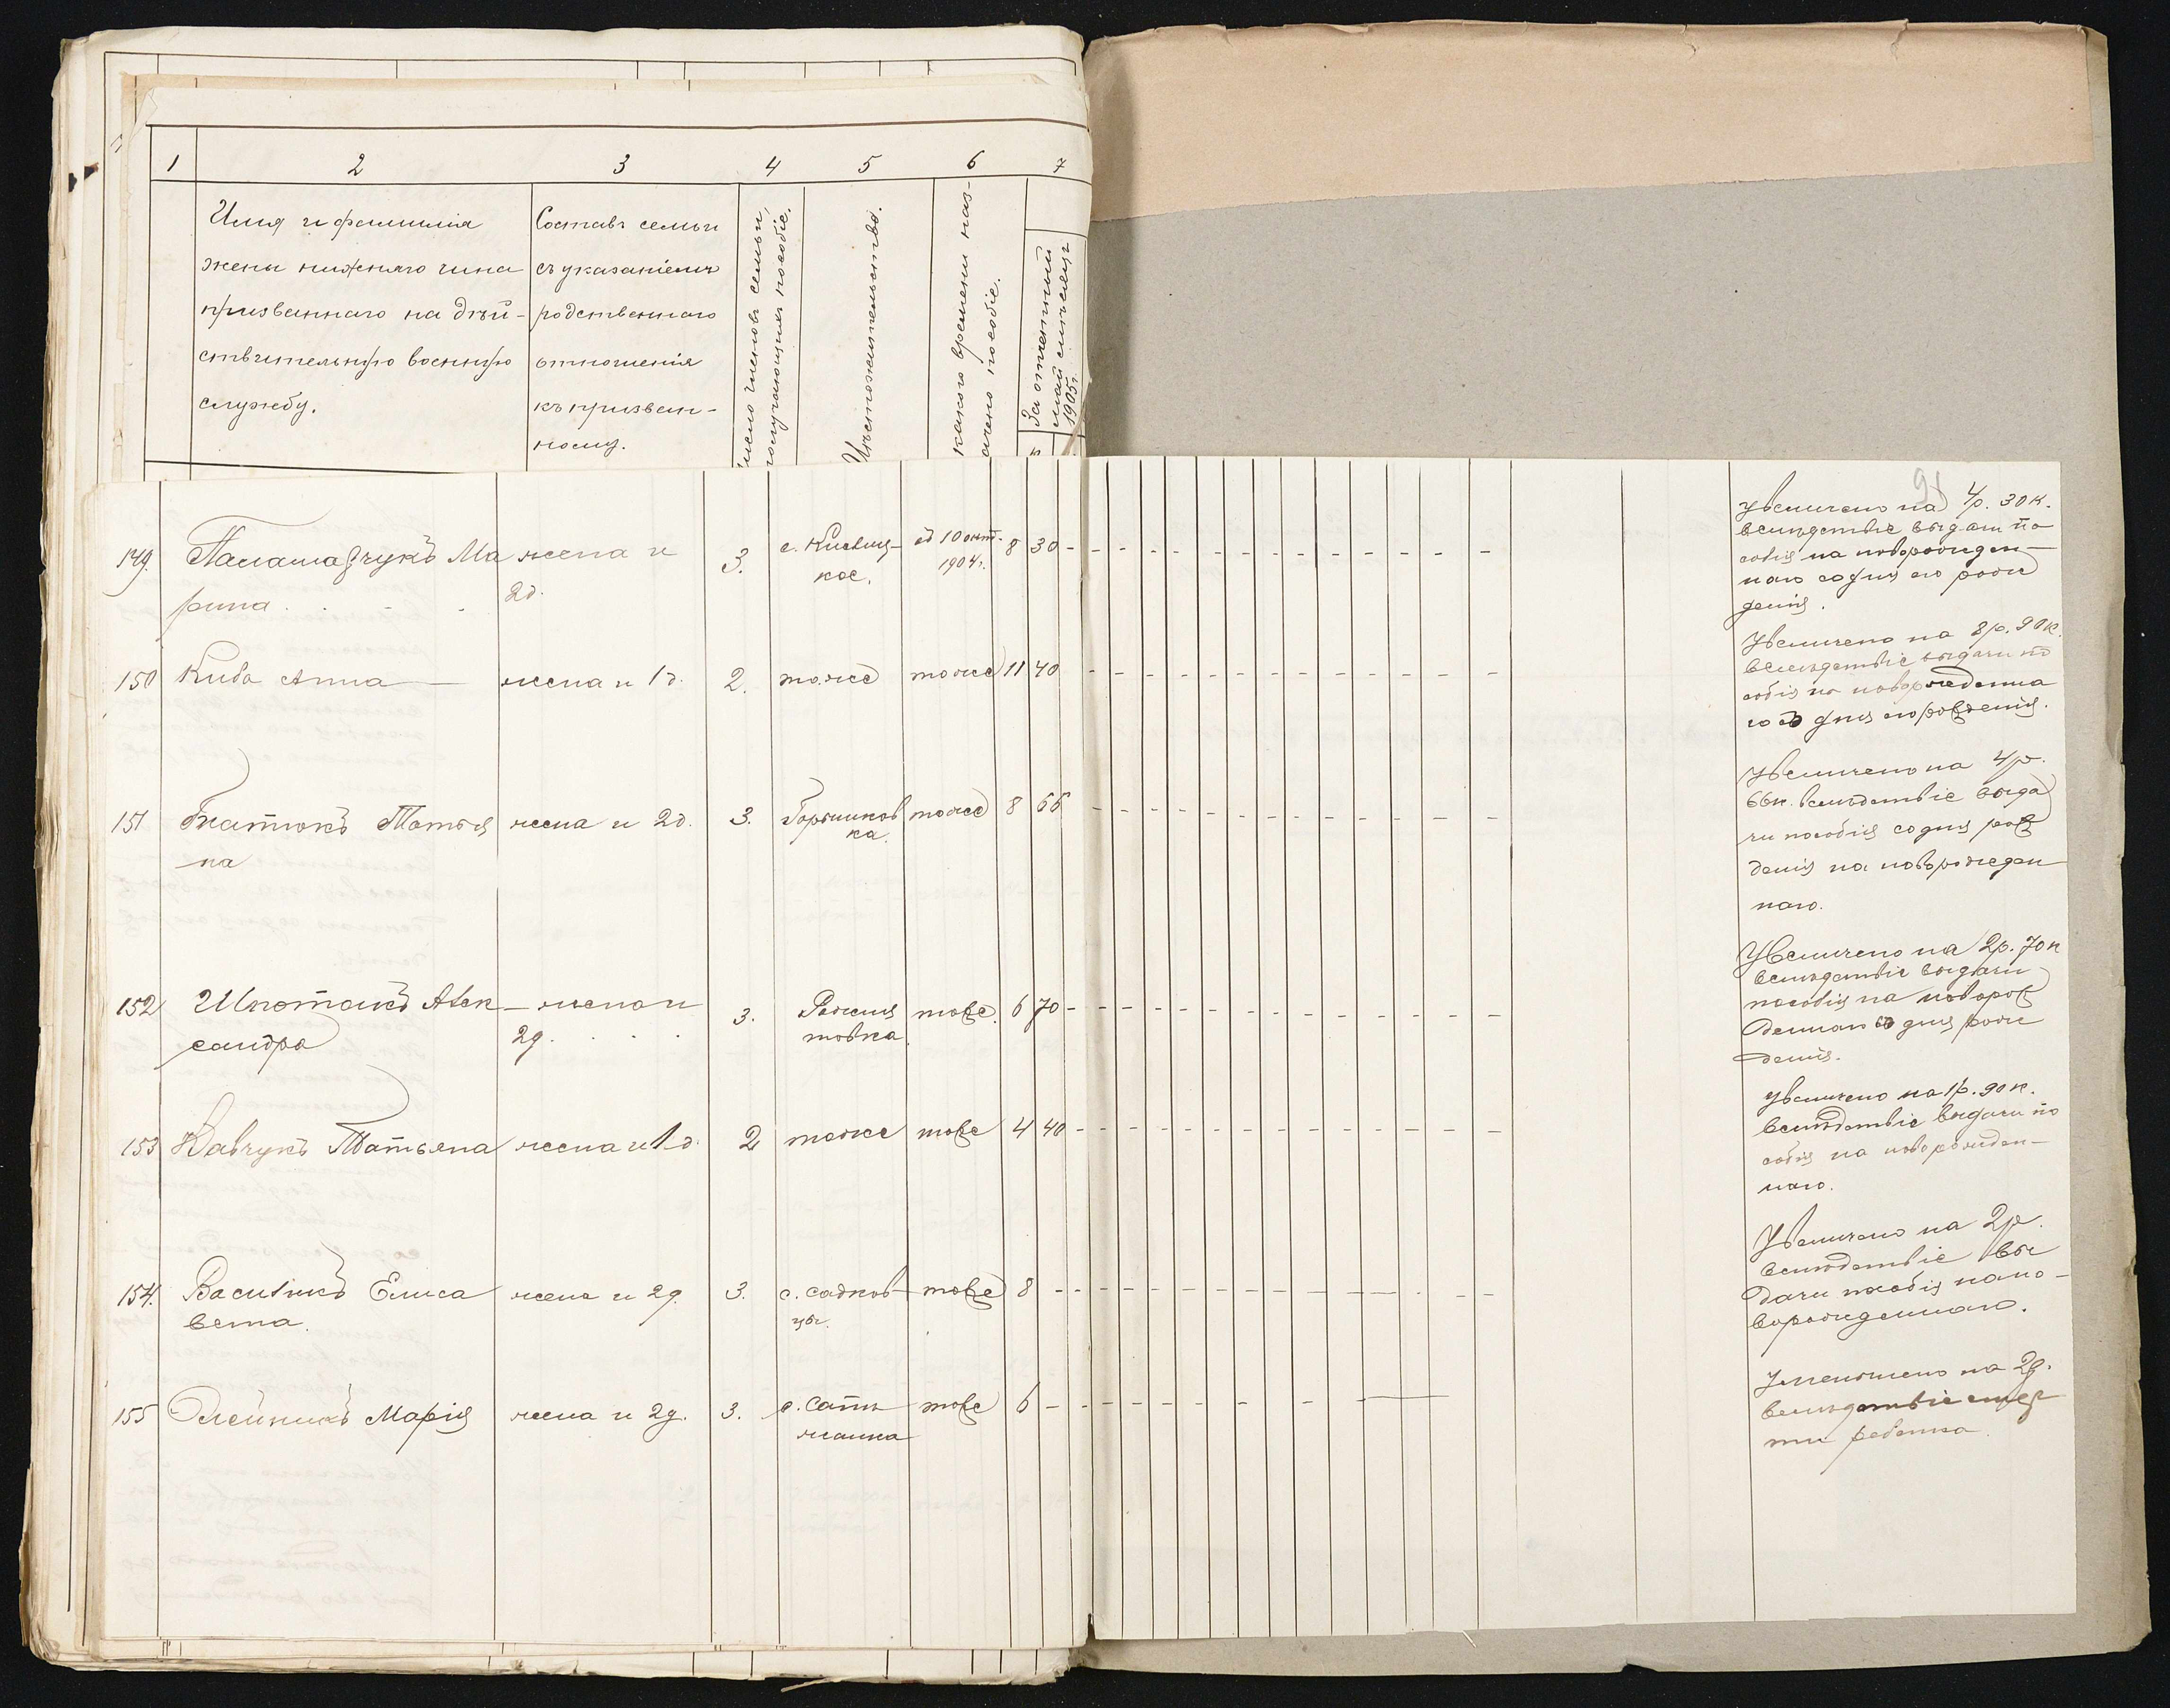 1 2 3 4 5 6 7
Имя и фамилія
жены нижняго чина
призваннаго на дѣй-
ствительную военную
службу.
Составъ семьи
съ указаніемъ
родственнаго
отношенія
къ призван-
ному.
число членовъ семьи,
получающихъ пособіе.
Мѣстожительство.
какого времени наз-
ачено пособіе.
За отчетный
май мѣсяцъ
1905г.
91
149. Паламарчукъ Ма жена и 3. с. Киевец- съ 10 окт. 8 30
рина 2д. кое. 1904г.
увеличено на 4р. 30к.
вслѣдствіе выдачи по
собія на новорожден-
наго со дня его рож
денія.
150 Кива Анна жена и 1д. 2. тоже тоже 11 40
Увеличено на 8р. 90к.
вслѣдствіе выдачи по
собія на новорожденна
го со дня его рожденія.
151 Гнатюкъ Татья жена и 2д. 3. Горышков тоже 8 66
на ка.
Увеличено на 4р.
66к. вслѣдствіе выда
чи пособія со дня рож
денія на новорожден
наго.
152 Шпотакъ Алек жена и 3. Рожня тоже. 6 70
сандра 2д. товка
Увеличено на 2р. 70к
вслѣдствіе выдачи
пособія на новорож
деннаго со дня рож
денія.
153 Кавчукъ Татьяна жена и 1д. 2 тоже тоже 4 40
увеличено на 1р. 90к.
вслѣдствіе выдачи по
собія на новорожден-
наго.
154. Василикъ Елиса жена и 2д. 3. с. Садков- тоже 8
вета. цы.
Увеличено на 2р.
вслѣдствіе вы
дачи пособія на но-
ворожденнаго.
155 Олейникъ Марія жена и 2д. 3. с. Сапѣ тоже 6
жанка
Уменьшено на 2р.
вслѣдствіе смер
ти ребенка.